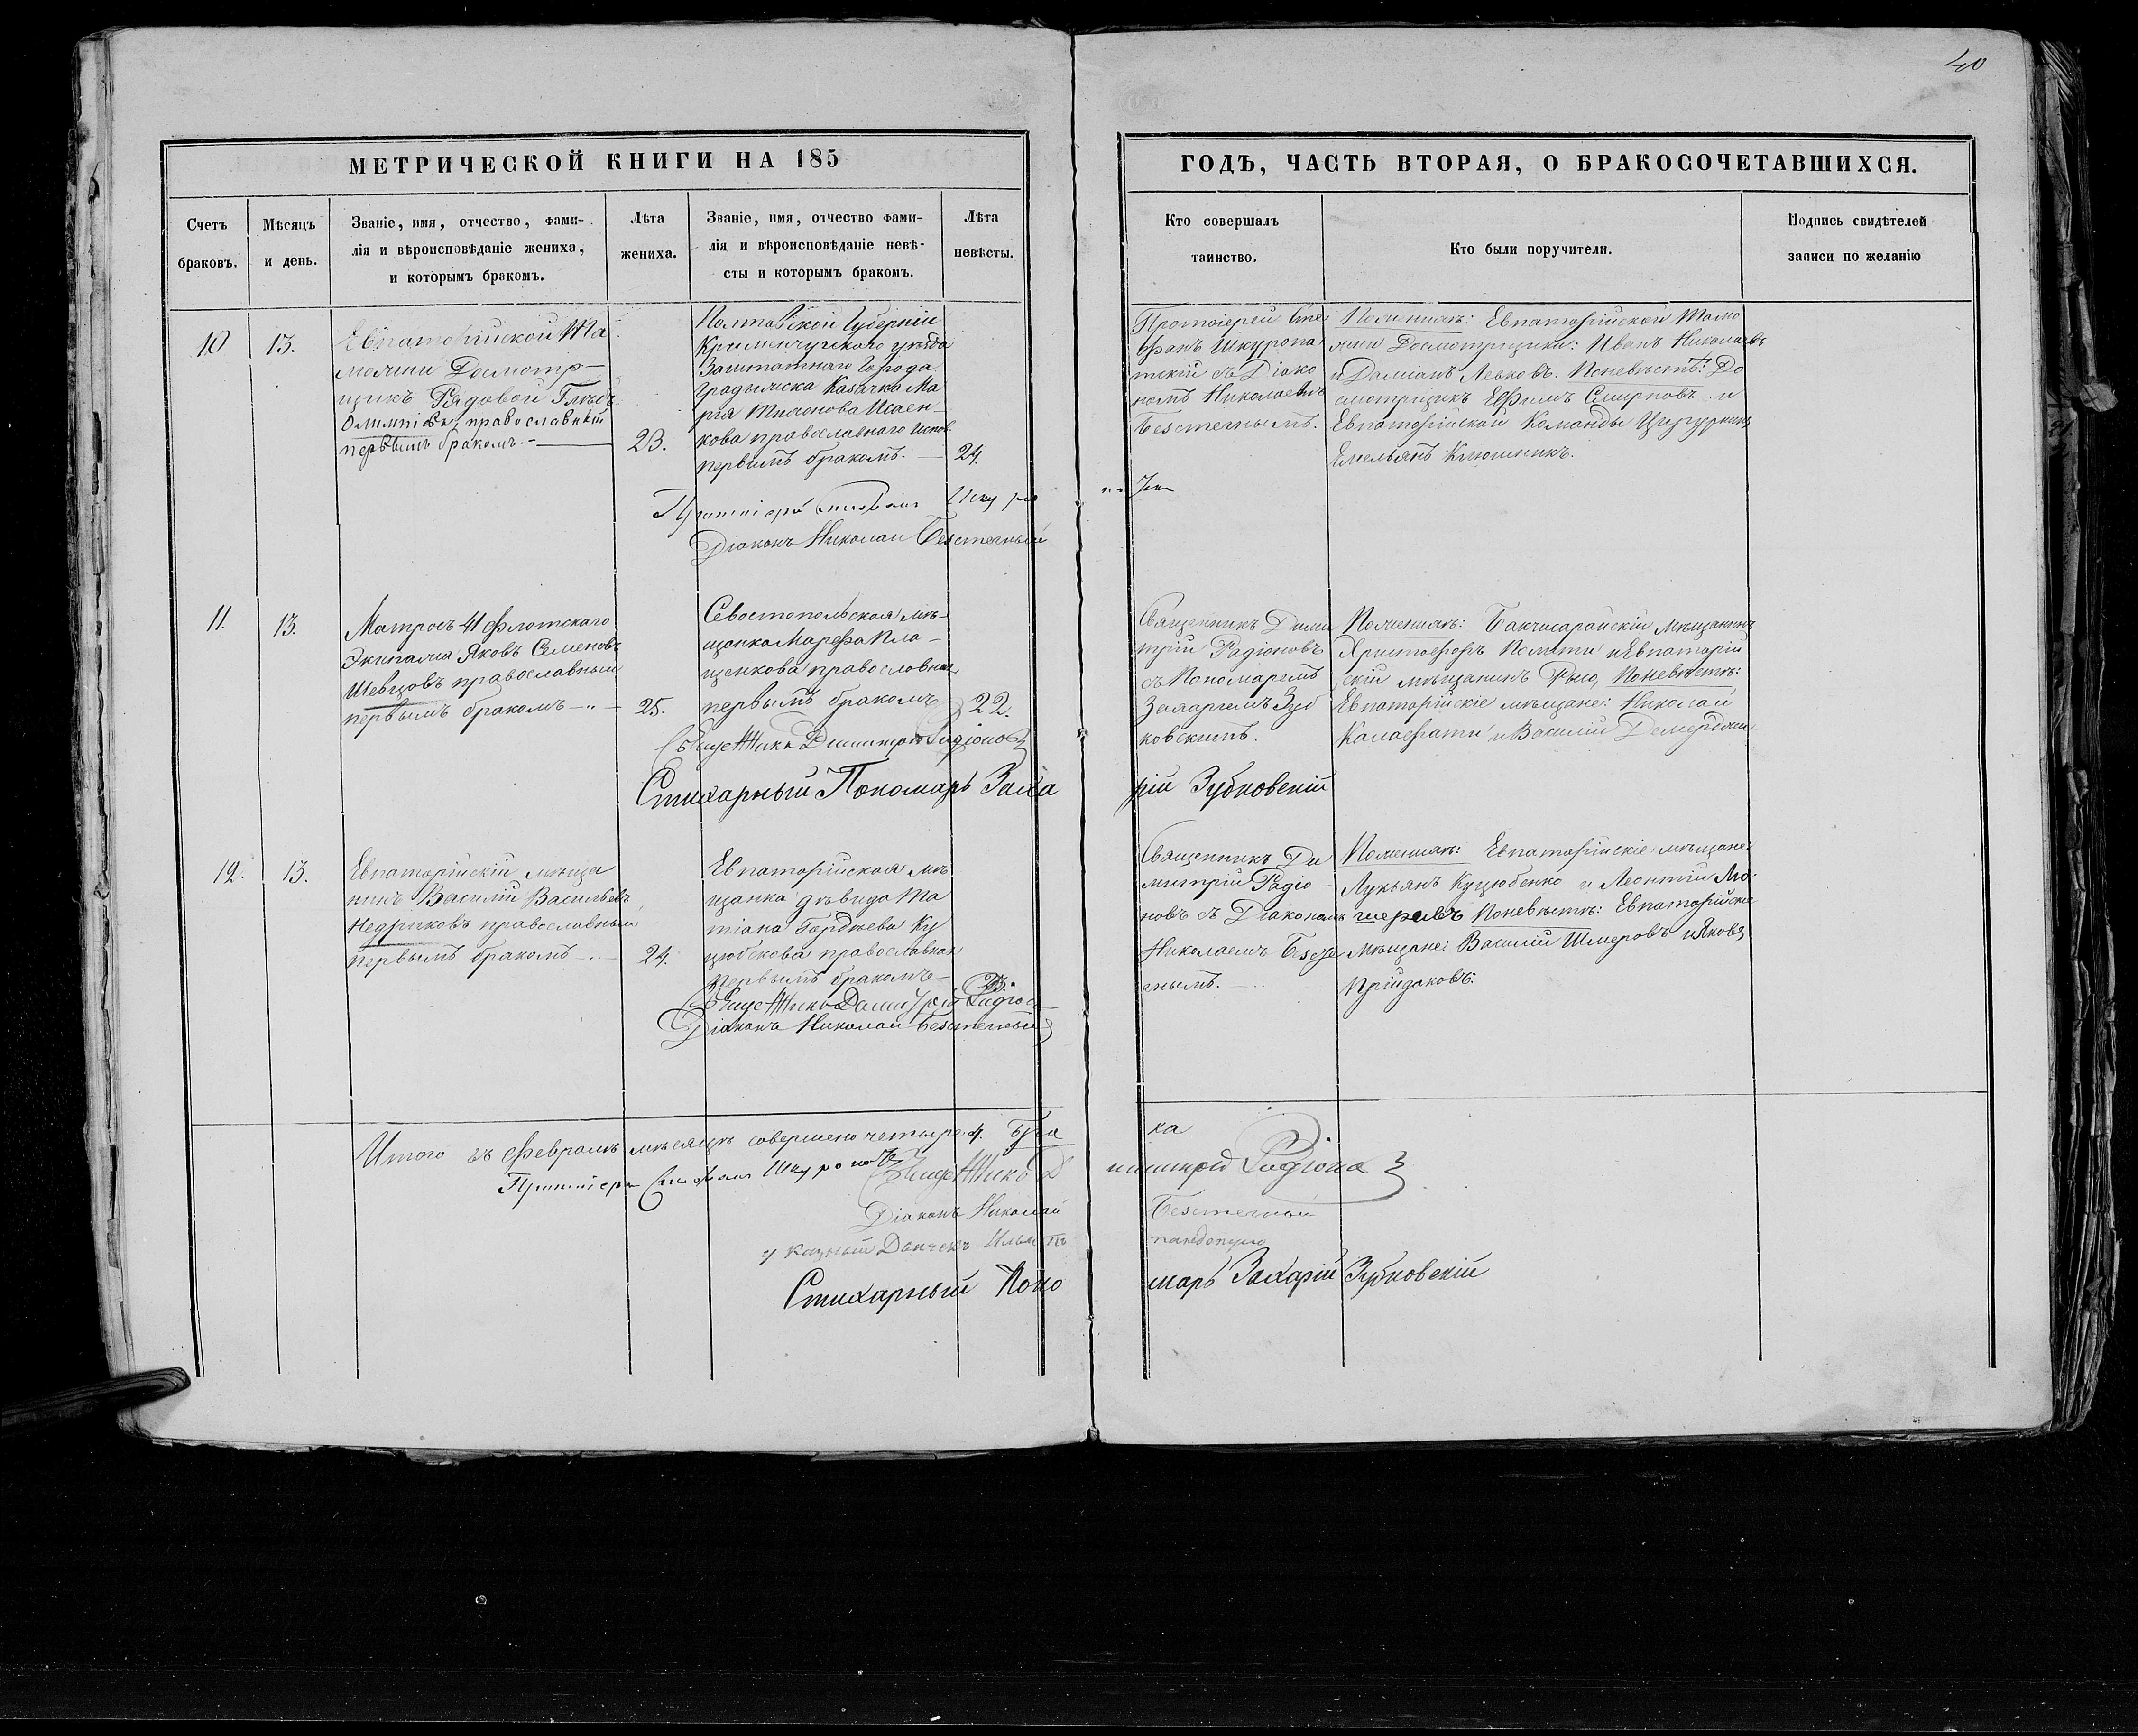 40
МЕТРИЧЕСКОЙ КНИГИ НА 185
ГОДЪ, ЧАСТЬ ВТОРАЯ, О БРАКОСОЧЕТАВШИХСЯ.
Счетъ
браковъ.
Мѣсяцъ
и день.
Званіе, имя, отчество, фами-
лія и вѣроисповѣданіе жениха,
и которымъ бракомъ.
Лѣта
жениха.
Званіе, имя, отчество фами-
лія и вѣроисповѣданіе невѣ-
сты и которымъ бракомъ.
Лѣта
невѣсты.
Кто совершалъ
таинство.
Кто были поручители.
Подпись свидѣтелей
записи по желанію
10
13.
Евпаторійской Та
можни Досмотр-
щикъ Рядовой Глѣбъ
православный
первымъ бракомъ.-
23.
Полтавской Губерніи
Кременчугского уѣзда
Заштатнаго Города
Градыжска Казачка Ма
рія
кова православнаго испов.
первымъ бракомъ.
24.
Протоіерей Сте
фанъ Шкуропа
тскій съ Діако
номъ Николаемъ
Безсчетнымъ.
По женихѣ: Евпаторійской Тамо
жни Досмотрщики: Иванъ Николаевъ
и Даміанъ Левковъ. По невѣстѣ: До
смотрщикъ Ефимъ Смирновъ и
Евпаторійской Команды
Емельянъ Ключникъ.
Діаконъ Николай Безсчетный
11.
13.
Матросъ 41 флотскаго
Экипажа Яковъ Семеновъ
Шевцовъ православный
первымъ бракомъ
25.
Севастопольская мѣ-
щанка Марефа Пла-
щенкова православная
первымъ бракомъ
22.
Священникъ Дими
трій Радіоновъ
съ Пономаремъ
Захаріемъ Зуб
ковскимъ.
По женихѣ: Бакчисарайскій мѣщанинъ
Христофоръ и Евпаторій
скій мѣщанинъ По невѣстѣ:
Евпаторійскіе мѣщане: Николай
Калафати и Василій Демерджи
Священникъ Димитрій Радіоновъ
Стихарный Пономарь Заха
рій Зубковскій
12.
13.
Евпаторійскій мѣща
нинъ Василій Васильевъ
Недриковъ православный
первымъ бракомъ
24.
Евпаторійская мѣ
щанка дѣвица Та
тіана Гордѣева Ку
цюбекова православная
первымъ бракомъ
Священникъ Ди
митрій Радіо-
новъ съ Діакономъ
Николаемъ Безсче
тнымъ.
По женихѣ: Евпаторійскіе мѣщане
Лукьянъ Куцюбенко и Леонтій
По невѣстѣ: Евпаторійскіе
Мѣщане: Василій Шмеровъ и Яковъ
Прійдаковъ.
Священникъ Димитрій Радіоновъ
Діаконъ Николай Безсчетный
Итого въ Февралѣ мѣсяцѣ совершено четыре 4. бра
ка
Протоіерей Стефанъ Шкуропат
Священникъ Д
имитрій Радіонов
Діаконъ Николай
Безсчетный
Стихарный Поно
марь Захарій Зубковскій